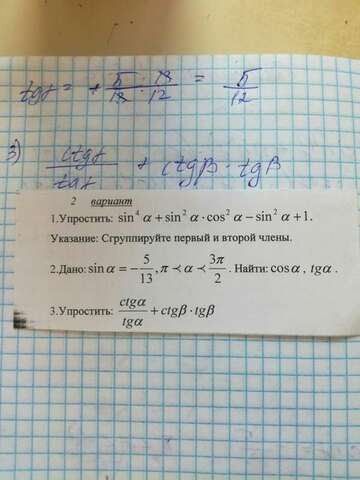 tgγ = + 5/13 · 13/12 = 5/12
3) ctgγ/tgγ + ctgβ · tgβ
2 вариант
1.Упростить: sin⁴ α + sin² α · cos² α − sin² α + 1.
Указание: Сгруппируйте первый и второй члены.
2.Дано: sin α = − 5/13, π ≺ α ≺ 3π/2. Найти: cos α, tgα.
3.Упростить: ctgα/tgα + ctgβ · tgβ